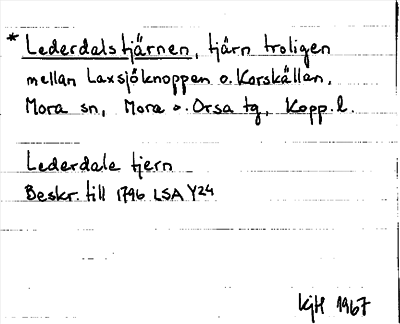 * Lederdalstjärnen, tjärn troligen
mellan Laxsjöknoppen o. Korskällan,
Mora sn, Mora o. Orsa tg, Kopp. l.
Lederdale tjern
Beskr. till 1796 LSA Y24
KjH 1967